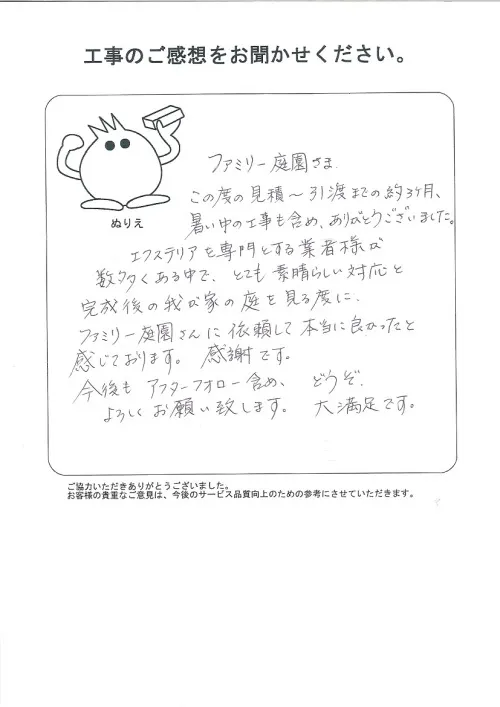 工事のご感想をお聞かせください。
ぬりえ
ファミリー庭園さま.
この度の見積～引渡までの約3ヶ月、
暑い中の工事も含め、ありがとうございました。
エクステリアを専門とする業者様が
数多くある中で、とても素晴らしい対応と
完成後の我が家の庭を見る度に、
ファミリー庭園さんに依頼して本当に良かったと
感じております。 感謝です。
今後も アフターフォロー含め、 どうぞ.
よろしくお願い致します。 大満足です。
ご協力いただきありがとうございました。
お客様の貴重なご意見は、今後のサービス品質向上のための参考にさせていただきます。